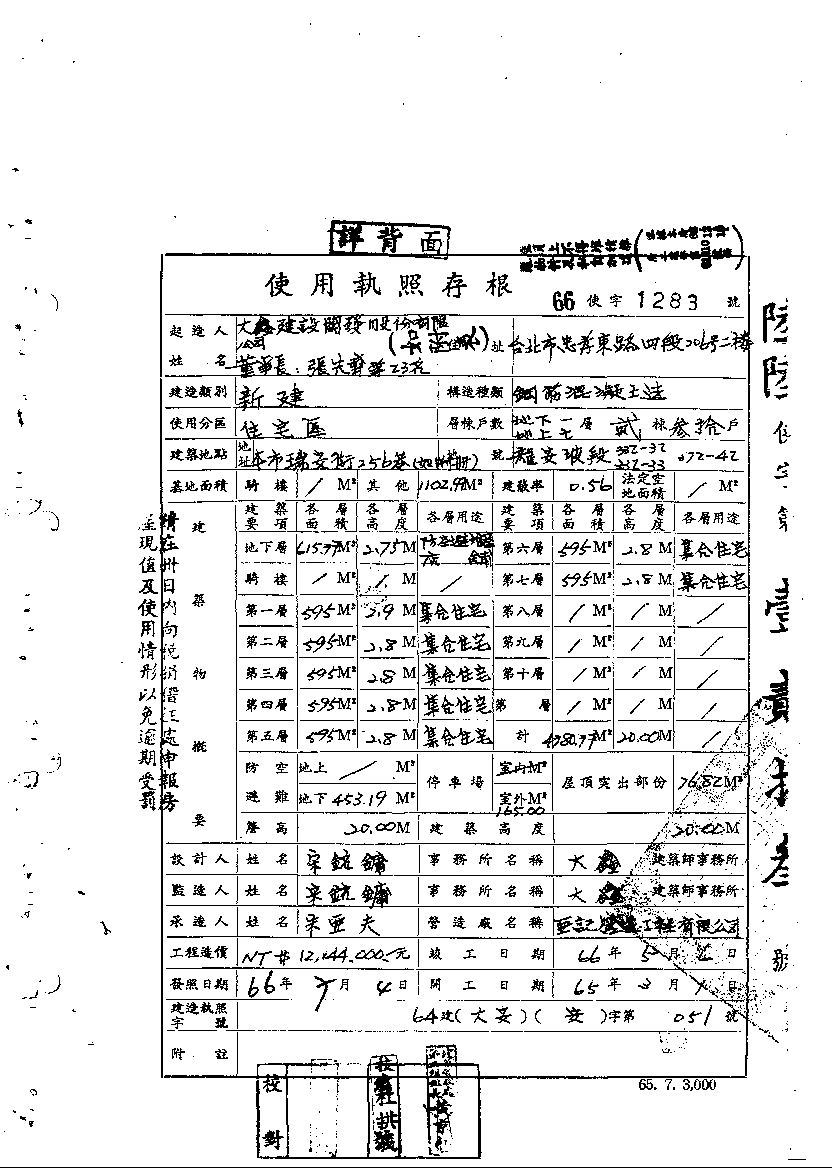 詳背面
使用執照存根
66 使字 1283 號
起造人 姓名 大鑫建設開發股份有限公司 住址 台北市忠孝東路四段206號二樓
董事長：張
建造類別 新建 構造種類 鋼筋混凝土造
使用分區 住宅區 層棟戶數 地下一層 地上七 貳棟 參拾戶
建築地點 地址 本市瑞安街256巷 號 段 332-32 332-33 372-42
基地面積 騎樓 / M² 其他 1102.99M² 建蔽率 0.56 法定空地面積 / M²
建築物概要
建築要項 各層面積 各層高度 各層用途 建築要項 各層面積 各層高度 各層用途
地下層 615.77M² 2.75M 第六層 595M² 2.8M 集合住宅
騎樓 / M² / M / 第七層 595M² 2.8M 集合住宅
第一層 595M² 2.9M 集合住宅 第八層 / M² / M /
第二層 595M² 2.8M 集合住宅 第九層 / M² / M /
第三層 595M² 2.8M 集合住宅 第十層 / M² / M /
第四層 595M² 2.8M 集合住宅 第 層 / M² / M /
第五層 595M² 2.8M 集合住宅 計 4780.77M² 20.00M /
防空避難 地上 / M² 地下 453.19M² 停車場 室內M² 室外M² 165.00 屋頂突出部份 76.82M²
簷高 20.00M 建築高度 20.00M
設計人 姓名 宋 鏞 事務所名稱 大鑫 建築師事務所
監造人 姓名 宋 鏞 事務所名稱 大鑫 建築師事務所
承造人 姓名 宋亞夫 營造廠名稱 亞記營造工程有限公司
工程造價 NT$ 12,144,000.-元 竣工日期 66年5月 日
發照日期 66年7月4日 開工日期 65年3月1日
建造執照字號 64建(大安)(安)字第051號
附註
65. 7. 3,000
校對
請在卅日內向稅捐稽征處申報房
屋現值及使用情形以免逾期受罰
陸陸使字第壹貳捌參號